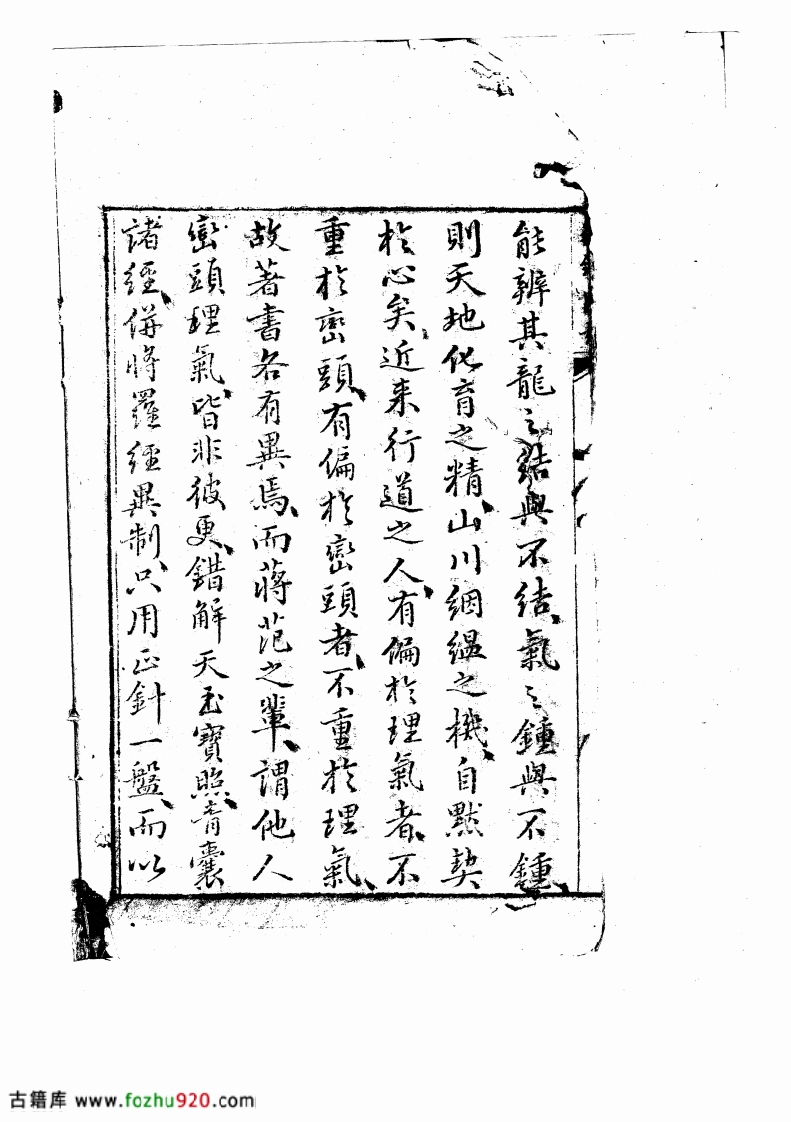 能辨其龍之結與不結、氣之鍾與不鍾、
則天地化育之精、山川絪緼之機、自默契
於心矣、近来行道之人、有偏於理氣者、不
重於巒頭、有偏於巒頭者、不重於理氣、
故著書各有異焉、而蔣范之輩、謂他人
巒頭理氣、皆非彼更、錯解天玉寶照、青囊
諸經、併將羅經異制、只用正針一盤、而以
古籍库 www.fozhu920.com